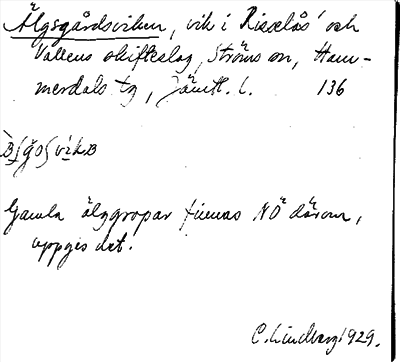 Älgsgårdsviken, vik i Risselås' och
Vallens skifteslag, Ströms sn, Ham-
merdals tg, Jämtl. l. 136
Gamla älggropar finnas NÖ därom,
uppgis det.
C. Lindberg 1929.